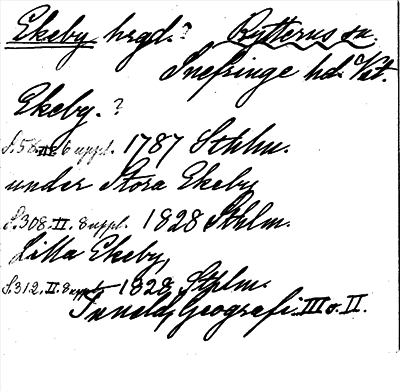 Ekeby hrgd.? Rytterns sn.
Snefringe hd. Vst.
Ekeby. ?
S. 58 III 6 uppl. 1787 Sthlm.
under Stora Ekeby
S. 308. II. 8 uppl. 1828 Sthlm.
Lilla Ekeby,
S. 312. II. 8 uppl. 1828 Sthlm.
Tunelds Geografi. III o. II.